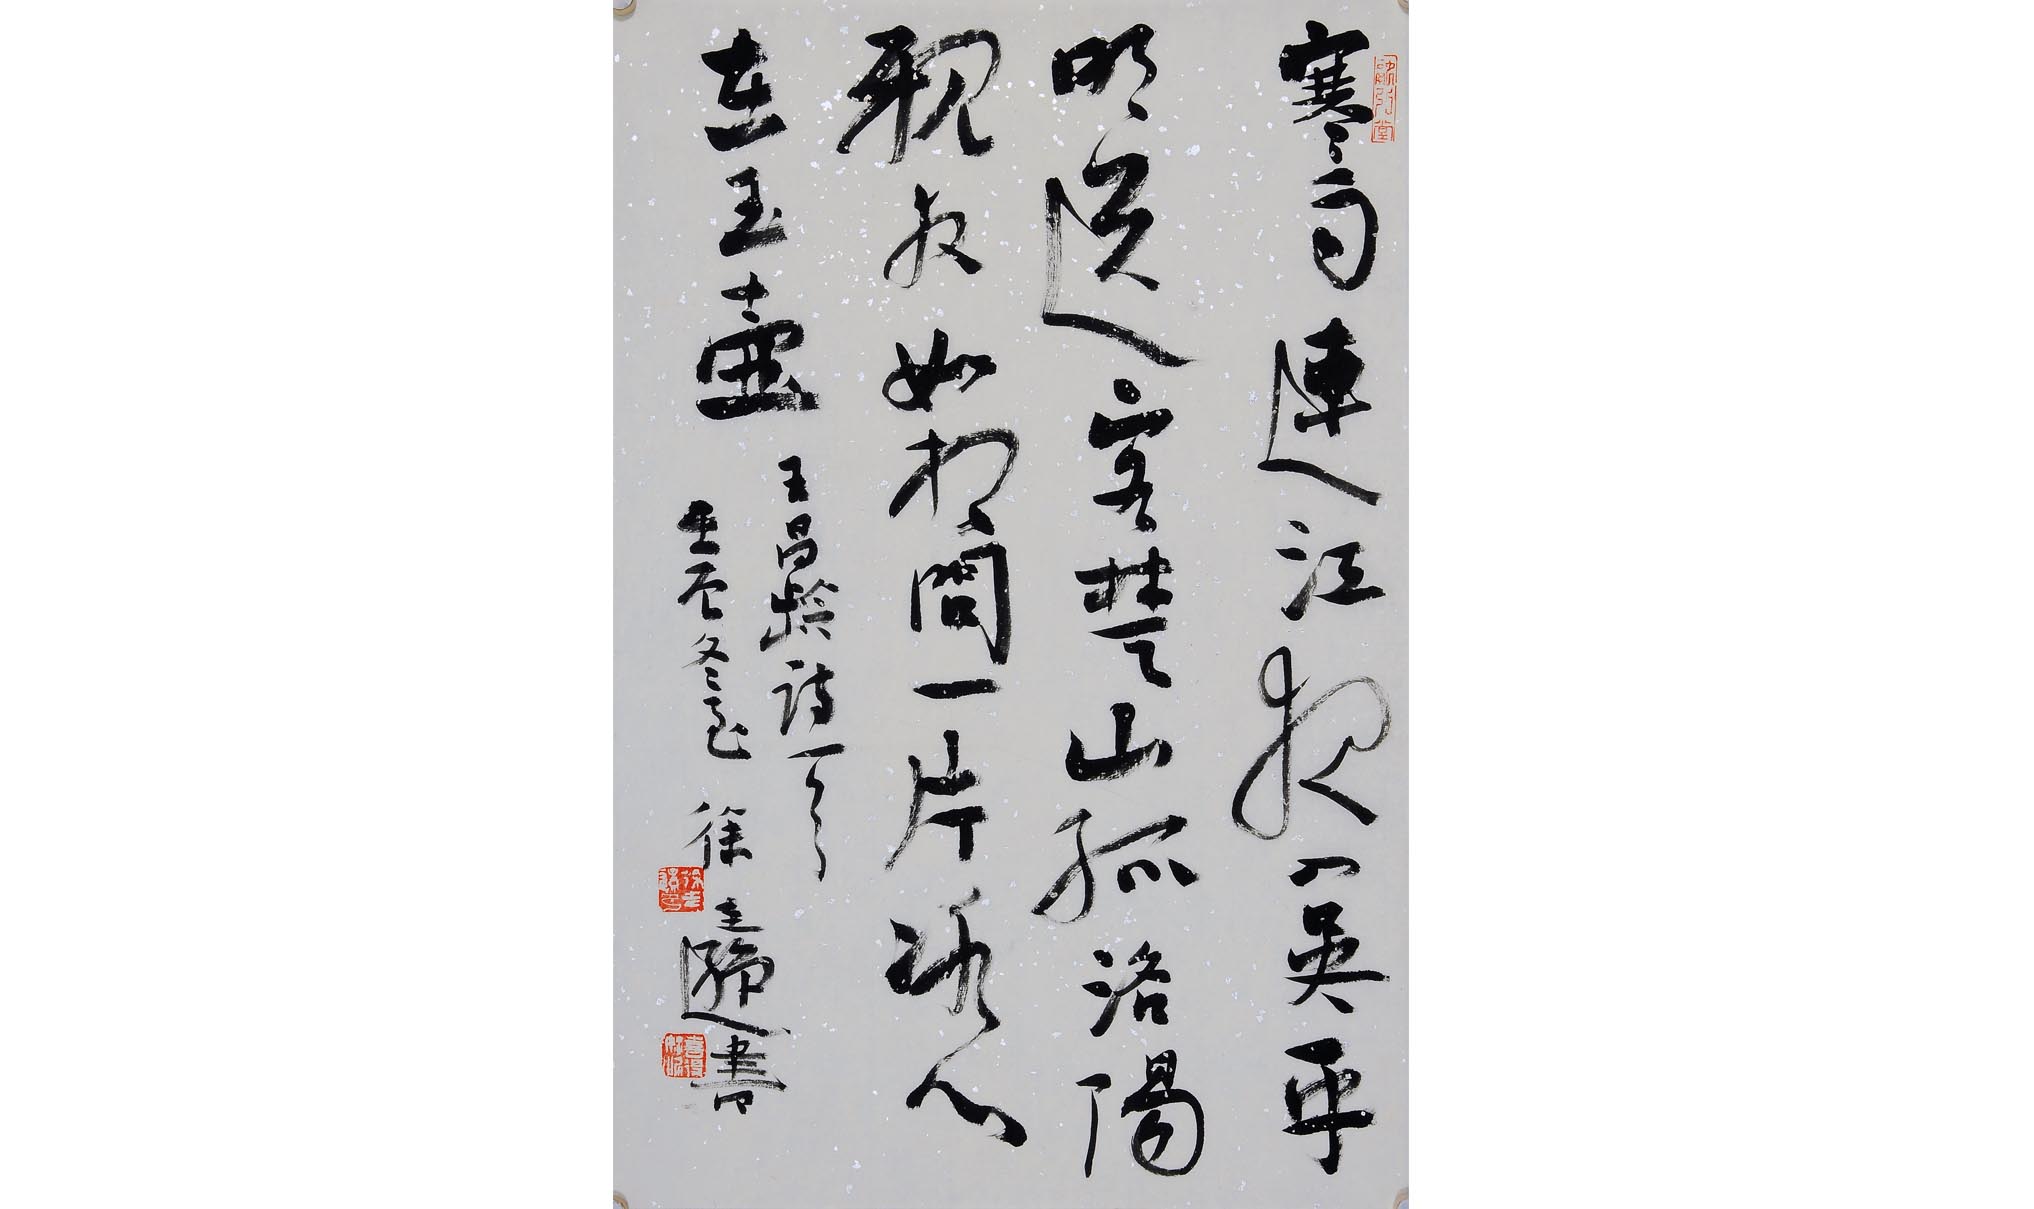 寒雨連江夜入吳平
明送客楚山孤洛陽
親友如相問一片冰心
在玉壺
王昌齡詩一首
壬辰冬至 徐志 書